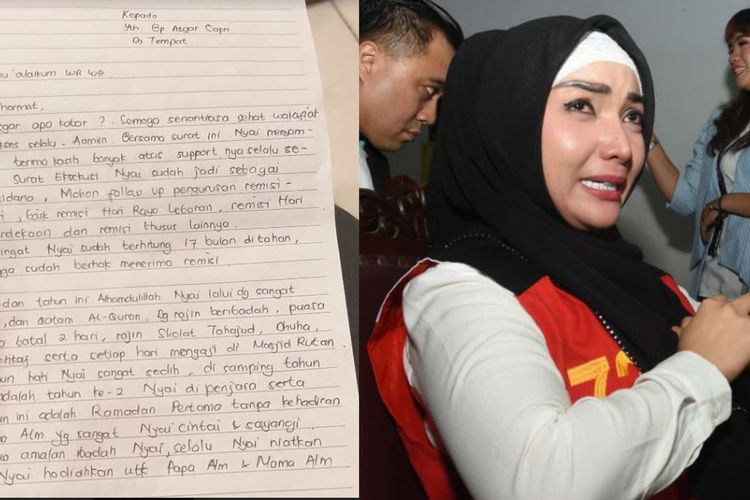 Kepada
Yth Bp Asgar Capri
Di Tempat
alaikum WR WB
hormat,
gar apa kabar ? Semoga senantiasa sehat walafiat
selalu. Aamiin. Bersama surat ini Nyai menyam-
terima kasih banyak atas support nya selalu se-
Surat Eksekusi Nyai sudah jadi sebagai
pidana, Mohon follow up pengurusan remisi-
, baik remisi Hari Raya Lebaran, remisi Hari
erdekaan dan remisi khusus lainnya.
ingat Nyai sudah terhitung 17 bulan ditahan,
ga sudah berhak menerima remisi.
dan tahun ini Alhamdulillah Nyai lalui dg sangat
, dan qatam Al-Quran. Dg rajin beribadah, puasa
batal 2 hari, rajin Sholat Tahajud, Dhuha,
serta setiap hari mengaji di Masjid Rutan.
un hati Nyai sangat sedih, di samping tahun
adalah tahun ke-2 Nyai di penjara serta
un ini adalah Ramadan Pertama tanpa kehadiran
Alm yg sangat Nyai cintai & sayangi.
amalan ibadah Nyai, selalu Nyai niatkan
Nyai hadiahkan utk Papa Alm & Mama Alm
7